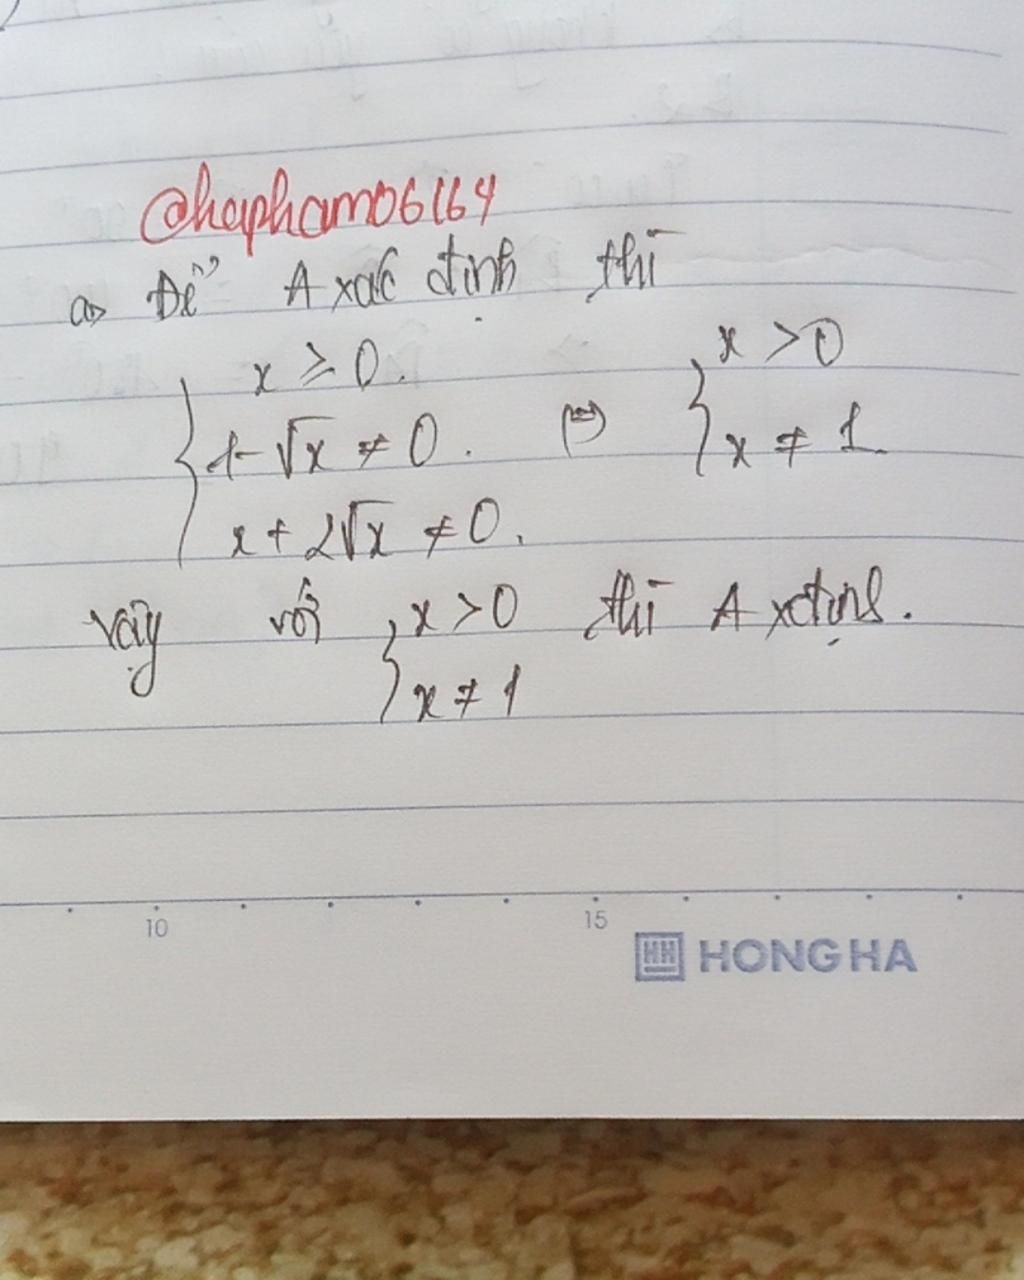 @hapham06164
a> Để A xác định thì
{ x ≥ 0. 
1-√x ≠ 0. (=) { x > 0
x + 2√x ≠ 0. x ≠ 1
Vậy với { x > 0 thì A xđịnh.
x ≠ 1
10 15
HH HONG HA